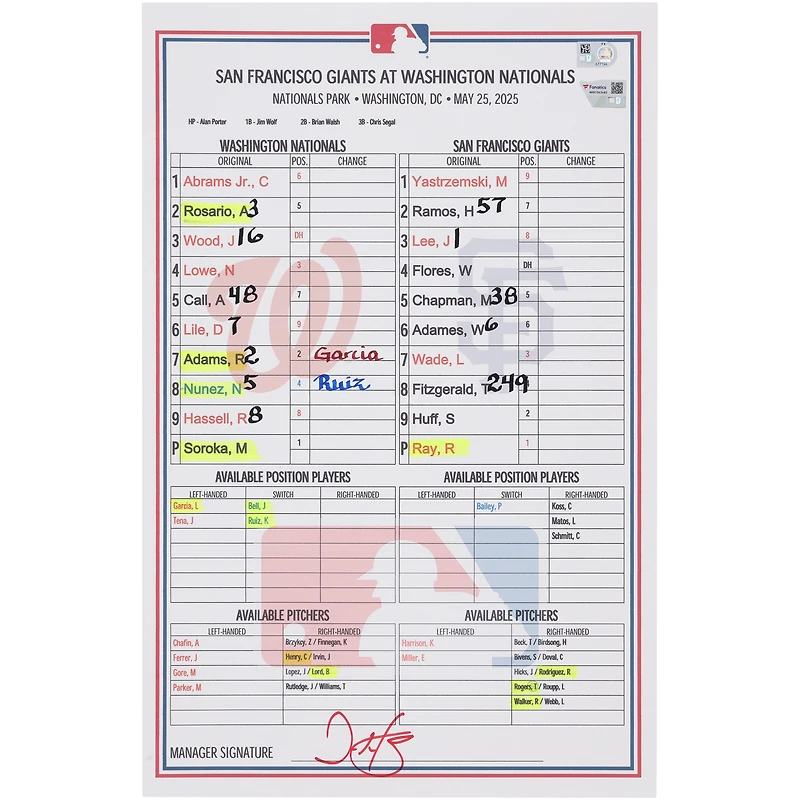 SAN FRANCISCO GIANTS AT WASHINGTON NATIONALS
NATIONALS PARK • WASHINGTON, DC • MAY 25, 2025
Fanatics
HP - Alan Porter 1B - Jim Wolf 2B - Brian Walsh 3B - Chris Segal
WASHINGTON NATIONALS
ORIGINAL POS. CHANGE
1 Abrams Jr., C 6
2 Rosario, A 3 5
3 Wood, J 16 DH
4 Lowe, N 3
5 Call, A 48 7
6 Lile, D 7 9
7 Adams, R 2 2 Garcia
8 Nunez, N 5 4 Ruiz
9 Hassell, R 8 8
P Soroka, M 1
SAN FRANCISCO GIANTS
ORIGINAL POS. CHANGE
1 Yastrzemski, M 9
2 Ramos, H 57 7
3 Lee, J 1 8
4 Flores, W DH
5 Chapman, M 38 5
6 Adames, W 6 6
7 Wade, L 3
8 Fitzgerald, T 249 4
9 Huff, S 2
P Ray, R 1
AVAILABLE POSITION PLAYERS
LEFT-HANDED SWITCH RIGHT-HANDED
Garcia, L Bell, J
Tena, J Ruiz, K
AVAILABLE POSITION PLAYERS
LEFT-HANDED SWITCH RIGHT-HANDED
Bailey, P Koss, C
Matos, L
Schmitt, C
AVAILABLE PITCHERS
LEFT-HANDED RIGHT-HANDED
Chafin, A Brzykcy, Z / Finnegan, K
Ferrer, J Henry, C / Irvin, J
Gore, M Lopez, J / Lord, B
Parker, M Rutledge, J / Williams, T
AVAILABLE PITCHERS
LEFT-HANDED RIGHT-HANDED
Harrison, K Beck, T / Birdsong, H
Miller, E Bivens, S / Doval, C
Hicks, J / Rodriguez, R
Rogers, T / Roupp, L
Walker, R / Webb, L
MANAGER SIGNATURE